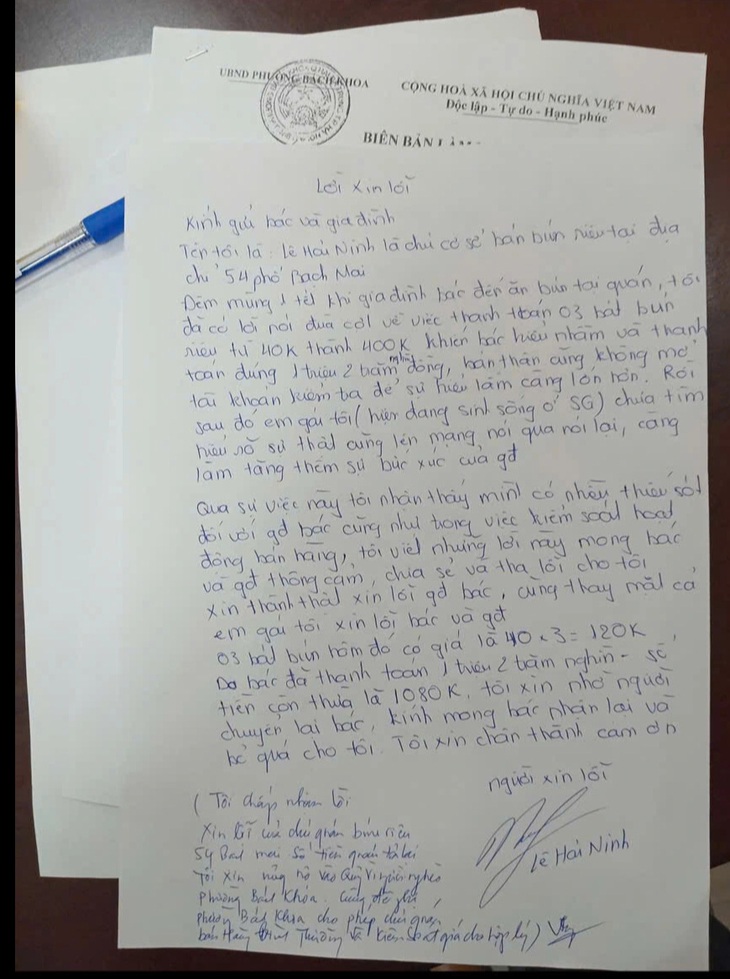 UBND PHƯỜNG BÁCH KHOA
CỘNG HOÀ XÃ HỘI CHỦ NGHĨA VIỆT NAM
Độc lập - Tự do - Hạnh phúc
BIÊN BẢN
Lời xin lỗi
Kính gửi bác và gia đình
Tên tôi là: Lê Hải Ninh là chủ cơ sở bán bún riêu tại địa
chỉ 54 phố Bạch Mai
Đêm mùng 1 tết khi gia đình bác đến ăn bún tại quán, tôi
đã có lời nói đùa cợt về việc thanh toán 03 bát bún
riêu từ 40K thành 400K khiến bác hiểu nhầm và thanh
toán đúng 1 triệu 2 trăm nghìn đồng, bản thân cũng không mở
tài khoản kiểm tra để sự hiểu lầm càng lớn hơn. Rồi
sau đó em gái tôi (hiện đang sinh sống ở SG) chưa tìm
hiểu rõ sự thật cũng lên mạng nói qua nói lại, càng
làm tăng thêm sự bức xúc của gđ
Qua sự việc này tôi nhận thấy mình có nhiều thiếu sót
đối với gđ bác cũng như trong việc kiểm soát hoạt
động bán hàng, tôi viết những lời này mong bác
và gđ thông cảm, chia sẻ và tha lỗi cho tôi
xin thành thật xin lỗi gđ bác, cùng thay mặt cả
em gái tôi xin lỗi bác và gđ
03 bát bún hôm đó có giá là 40 x 3 = 120K,
Do bác đã thanh toán 1 triệu 2 trăm nghìn - số
tiền còn thừa là 1080K, tôi xin nhờ người
chuyển lại bác, kính mong bác nhận lại và
bỏ quá cho tôi. Tôi xin chân thành cảm ơn
người xin lỗi
Lê Hải Ninh
(Tôi chấp nhận lời
xin lỗi của chủ quán bún riêu
54 Bạch mai số tiền quán trả lại
Tôi xin ủng hộ vào Quỹ Vì người nghèo
phường Bách Khoa. Cũng đề nghị
phường Bách Khoa cho phép chủ quán
bán Hàng Bình Thường và kiểm soát giá cho hợp lý)